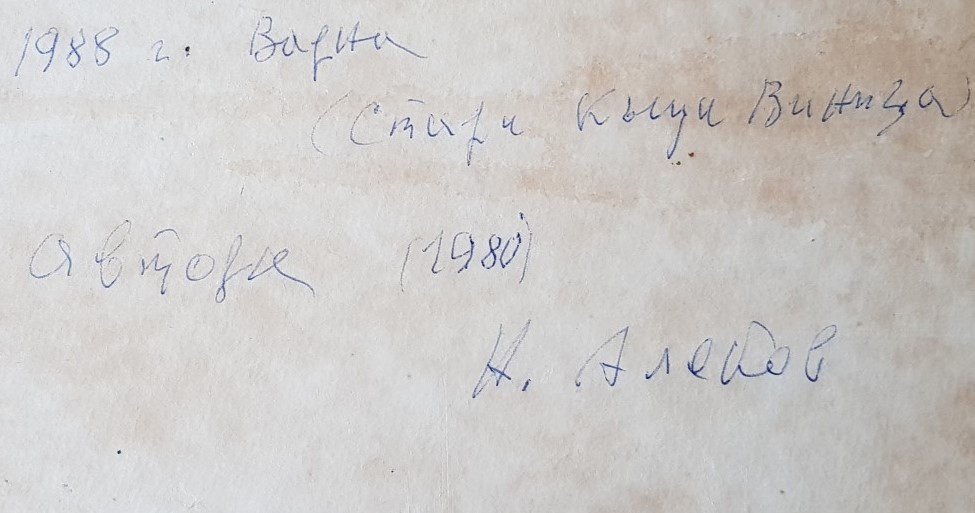 1988 г. Варна
(Стари къщи Виница)
автора (1980)
Н. Алеков